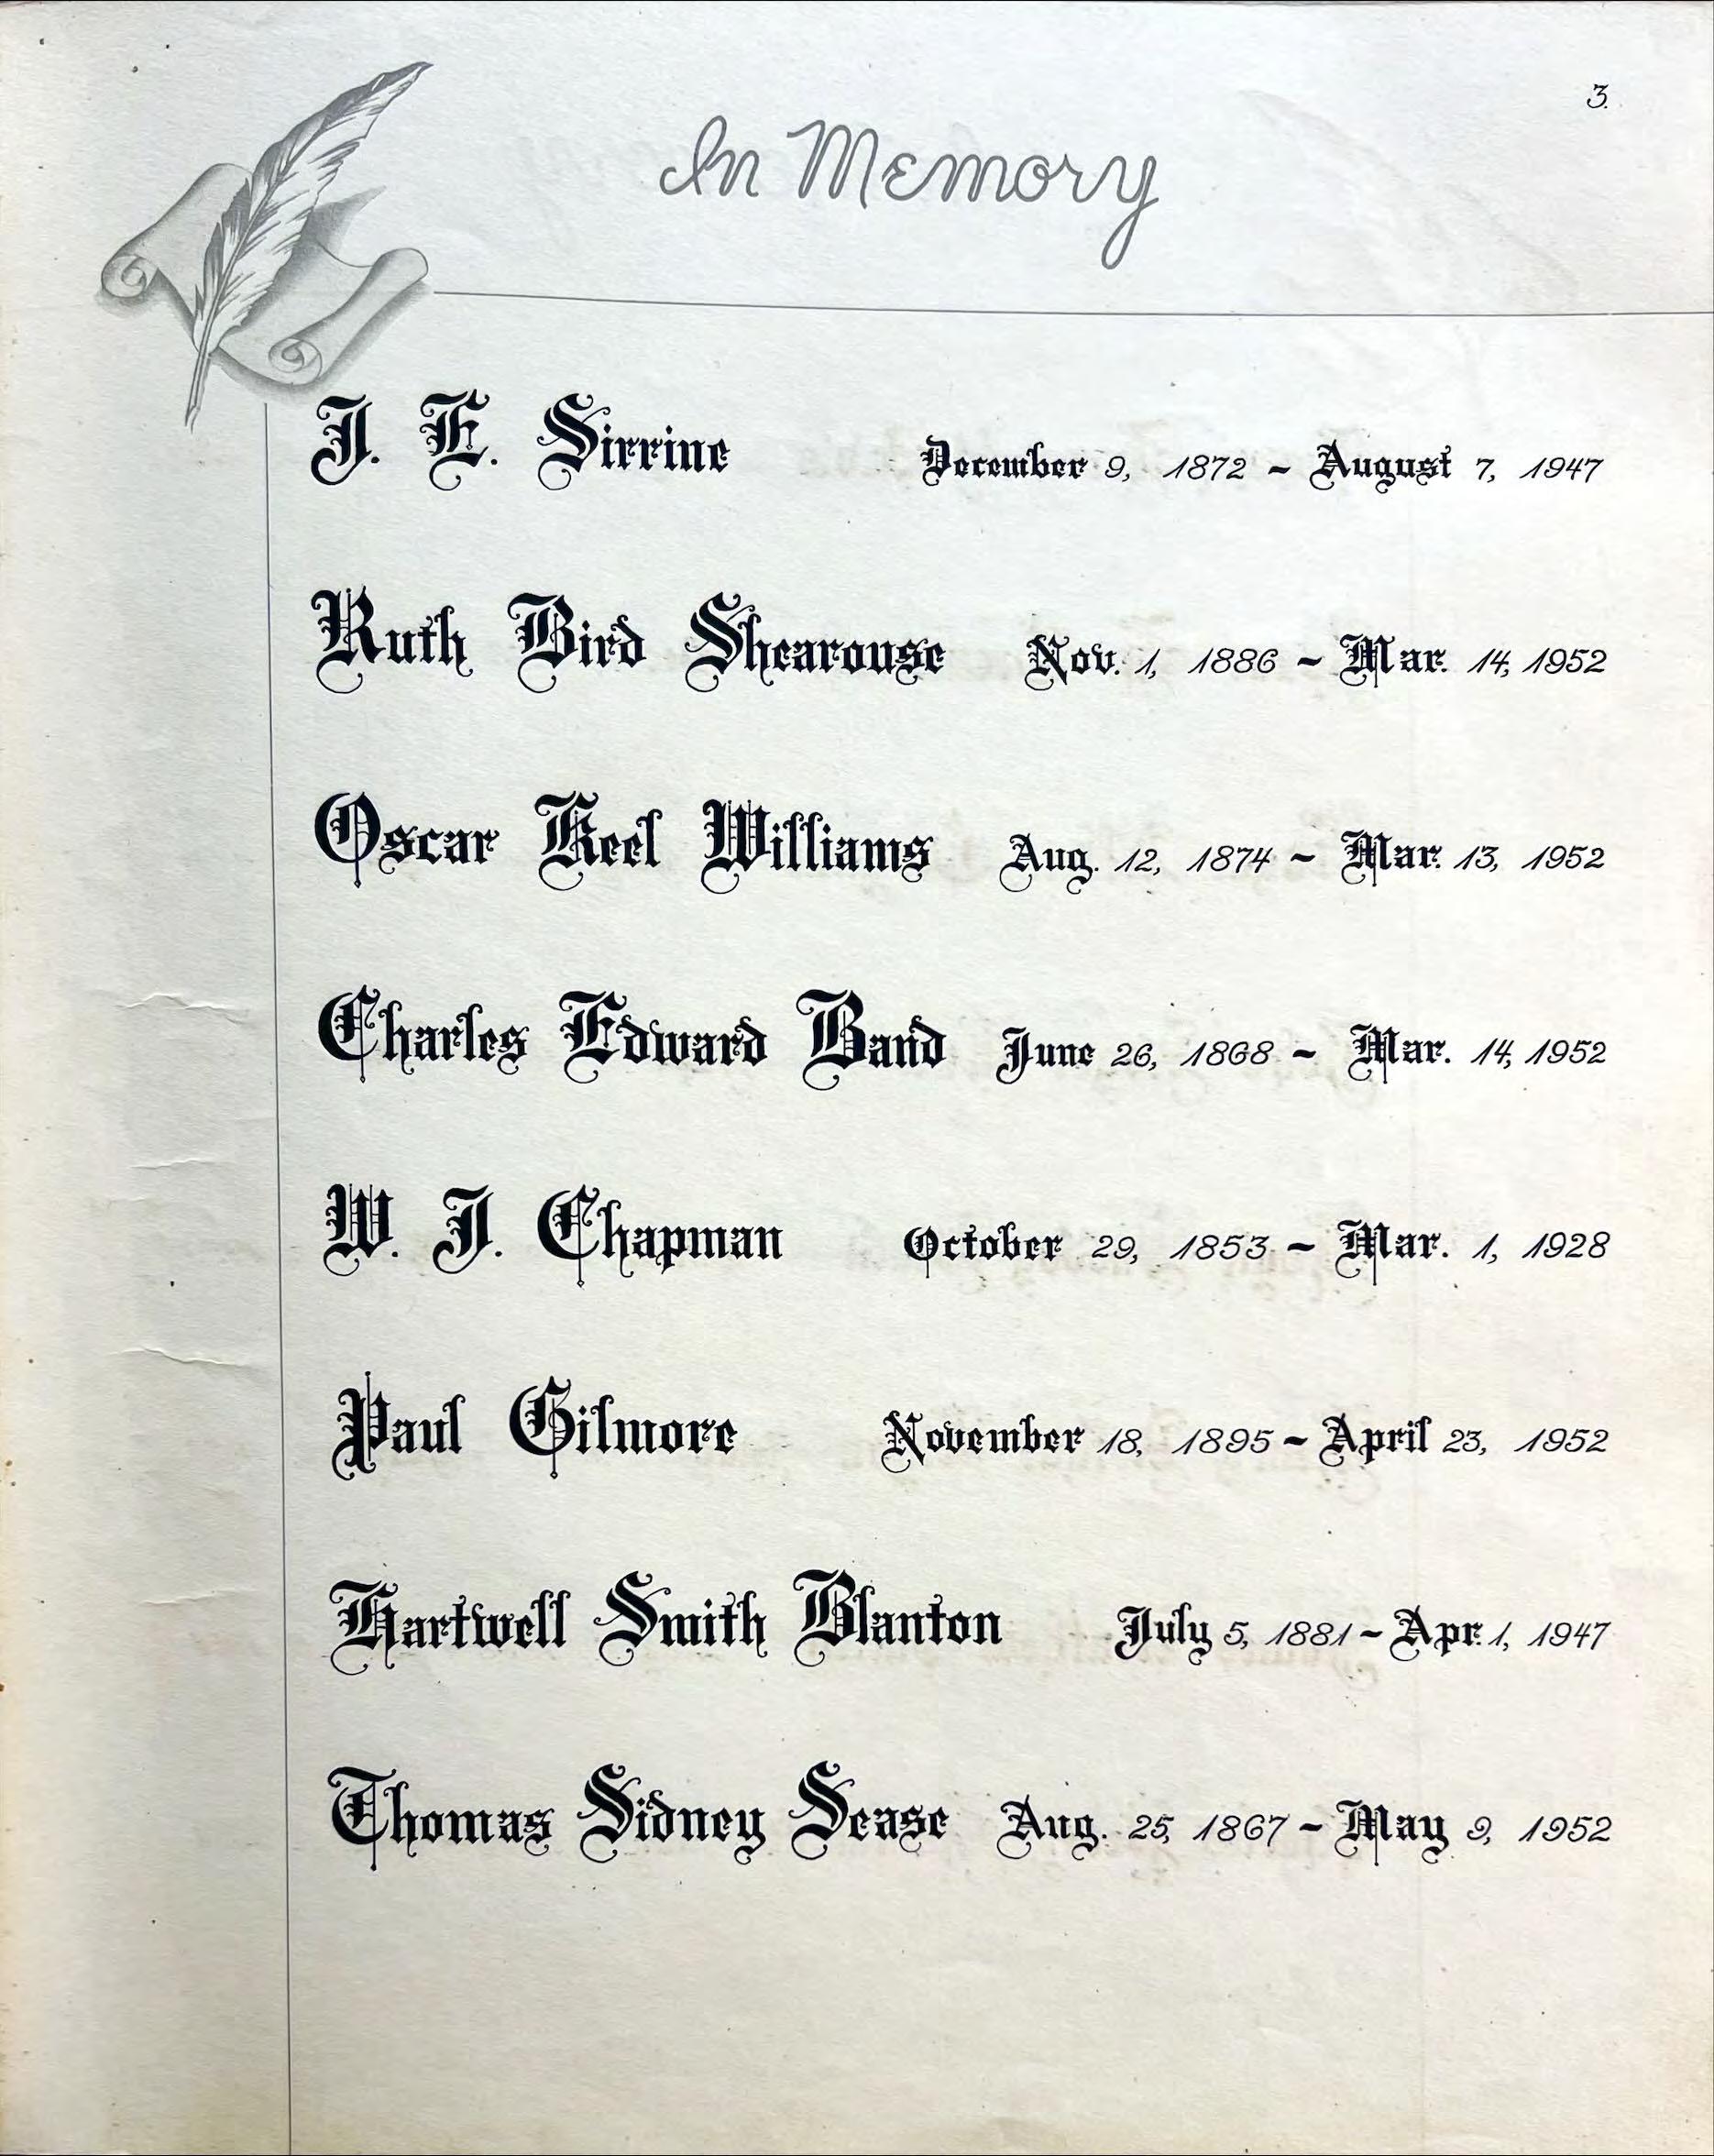 3.
In Memory
J. E. Sirrine December 9, 1872 ~ August 7, 1947
Ruth Bird Shearouse Nov. 1, 1886 ~ Mar. 14, 1952
Oscar Keel Williams Aug. 12, 1874 ~ Mar. 13, 1952
Charles Edward Band June 26, 1868 ~ Mar. 14, 1952
W. J. Chapman October 29, 1853 ~ Mar. 1, 1928
Paul Gilmore November 18, 1895 ~ April 23, 1952
Hartwell Smith Blanton July 5, 1881 ~ Apr. 1, 1947
Thomas Sidney Sease Aug. 25, 1867 ~ May 9, 1952